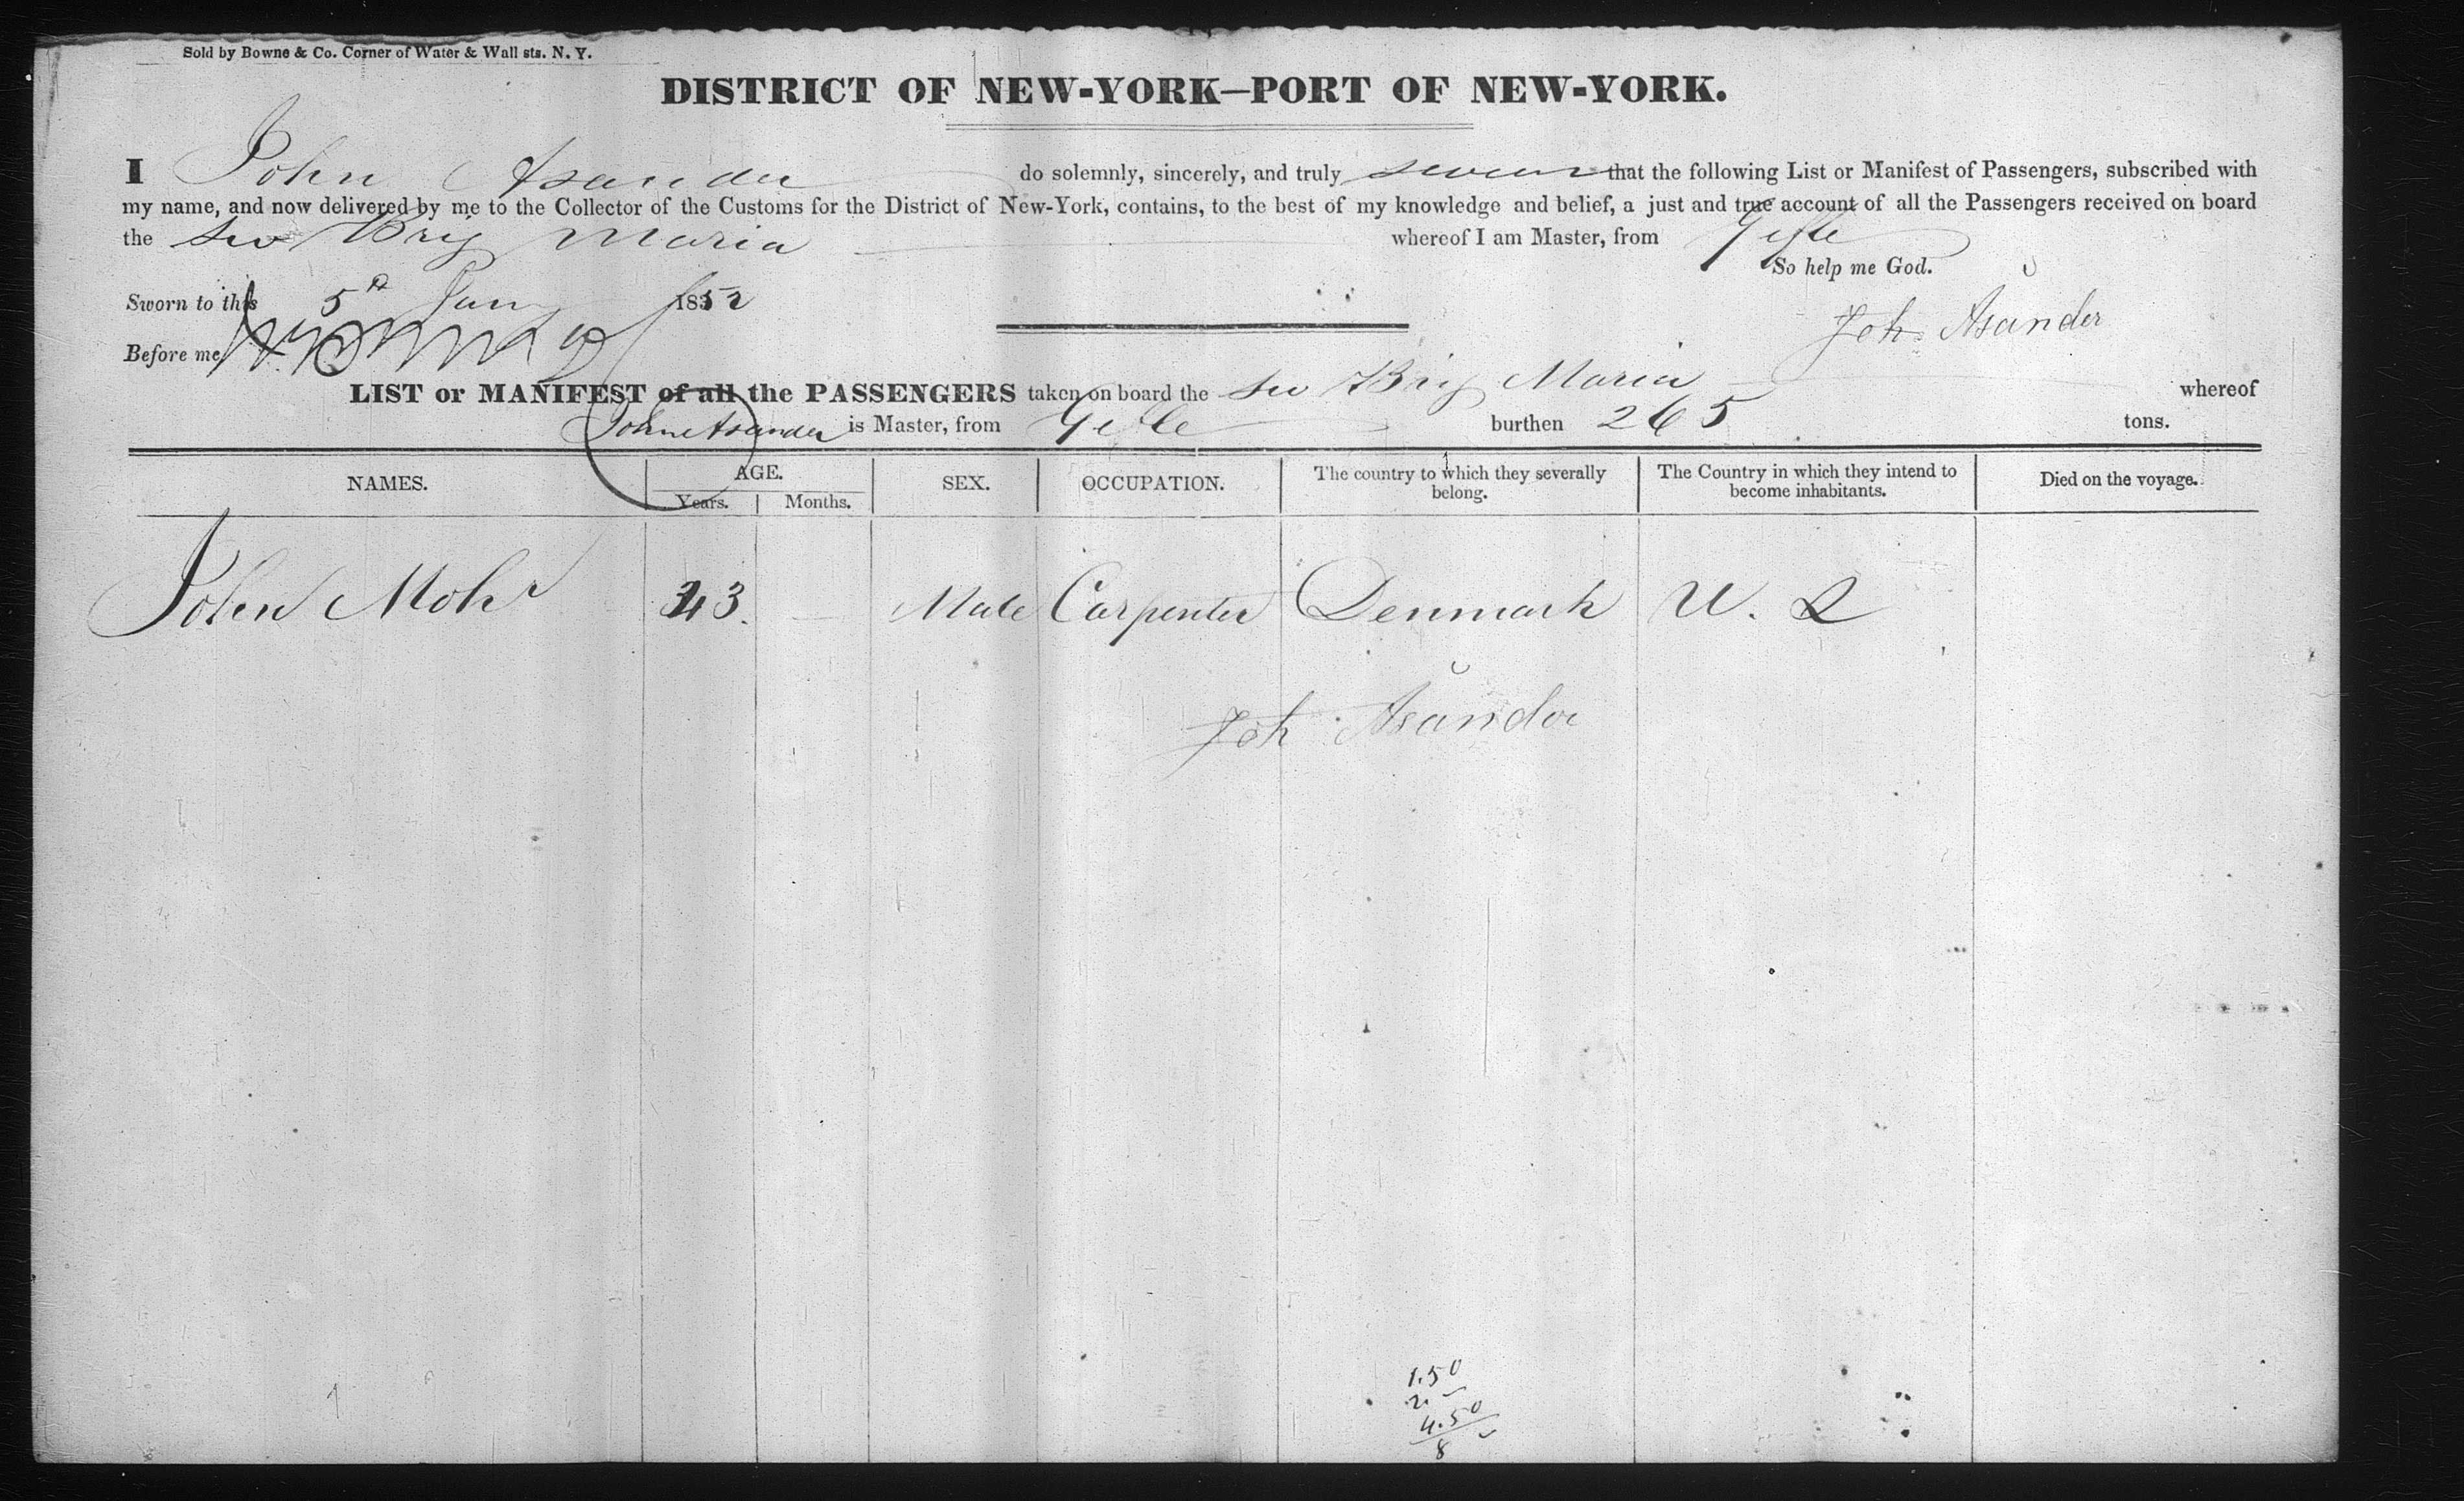 Sold by Bowne & Co. Corner of Water & Wall sts. N. Y.
DISTRICT OF NEW-YORK—PORT OF NEW-YORK.
I John Asander do solemnly, sincerely, and truly swear that the following List or Manifest of Passengers, subscribed with
my name, and now delivered by me to the Collector of the Customs for the District of New-York, contains, to the best of my knowledge and belief, a just and true account of all the Passengers received on board
the Sw Brig Maria whereof I am Master, from Gefle
So help me God.
Sworn to this 5th Jany 1852
Joh Asander
Before me
LIST or MANIFEST of all the PASSENGERS taken on board the Sw Brig Maria whereof
John Asander is Master, from Gefle burthen 265 tons.
NAMES. AGE. SEX. OCCUPATION. The country to which they severally belong. The Country in which they intend to become inhabitants. Died on the voyage.
Years. Months.
John Mohr Male Carpenter Denmark U. S
Joh Asander
1.50
2.
4.50
8